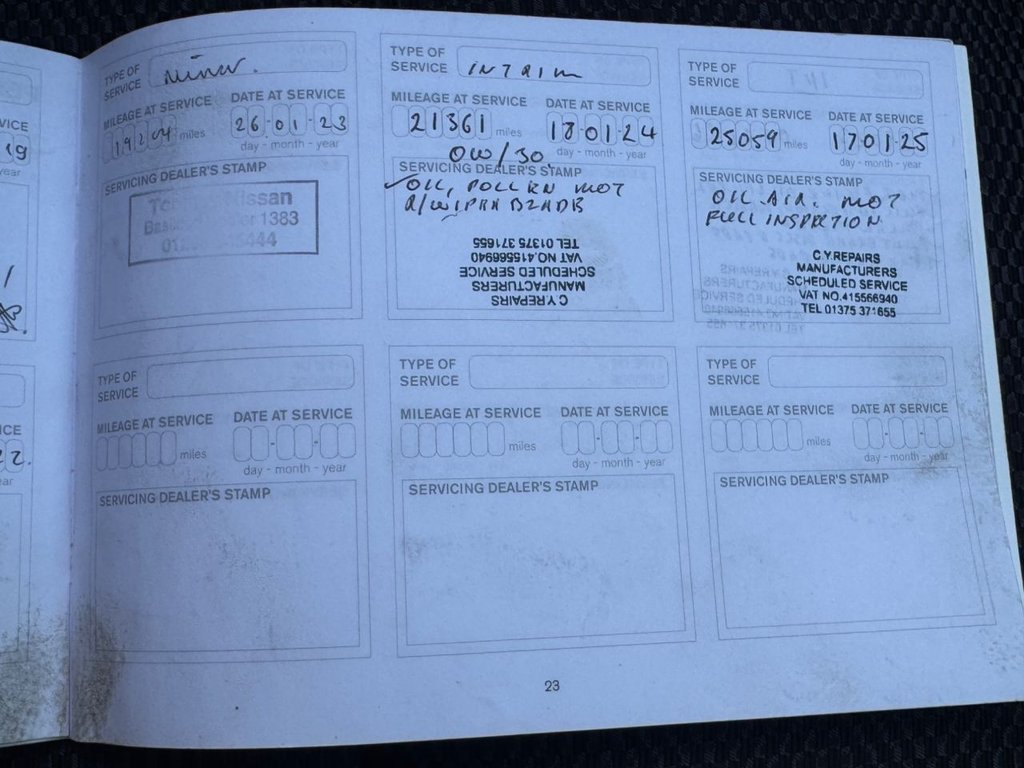 19
ear
22.
TYPE OF
SERVICE
Minor.
MILEAGE AT SERVICE
19204 miles
DATE AT SERVICE
26-01-23
day - month - year
SERVICING DEALER'S STAMP
Nissan
1383
444
TYPE OF
SERVICE
INTRIM
MILEAGE AT SERVICE
21361 miles
DATE AT SERVICE
18-01-24
day - month - year
0W/30
SERVICING DEALER'S STAMP
✓OIL, POLLEN MOT
C.Y.REPAIRS
MANUFACTURERS
SCHEDULED SERVICE
VAT NO.415566940
TEL 01375 371655
TYPE OF
SERVICE
MILEAGE AT SERVICE
25059 miles
DATE AT SERVICE
17-01-25
day - month - year
SERVICING DEALER'S STAMP
OIL. AIR. MOT
FULL INSPECTION
C.Y.REPAIRS
MANUFACTURERS
SCHEDULED SERVICE
VAT NO.415566940
TEL 01375 371655
TYPE OF
SERVICE
MILEAGE AT SERVICE
miles
DATE AT SERVICE
day - month - year
SERVICING DEALER'S STAMP
TYPE OF
SERVICE
MILEAGE AT SERVICE
miles
DATE AT SERVICE
day - month - year
SERVICING DEALER'S STAMP
TYPE OF
SERVICE
MILEAGE AT SERVICE
miles
DATE AT SERVICE
day - month - year
SERVICING DEALER'S STAMP
23